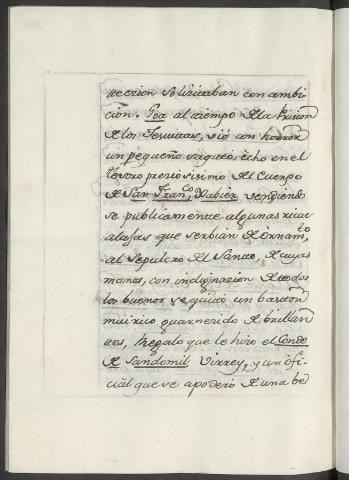 reccion solizitaban con ambi-
cion. Goa al tiempo de la Prision
de los Jesuitas, vió con horror
un pequeño saqueo echo en el
tesoro preziosisimo del Cuerpo
de San Fran.co Xabier vendiendo
se publicamente algunas ricas
alajas que serbian de ornam.to
al sepulcro del Santo, de cuyas
manos, con indignacion de todos
los buenos se quitó un baston
mui rico guarnezido de brillan
tes, Regalo que le hizo el Conde
de Sandomil Virrey, y un ofi-
cial que se apoderó de una be